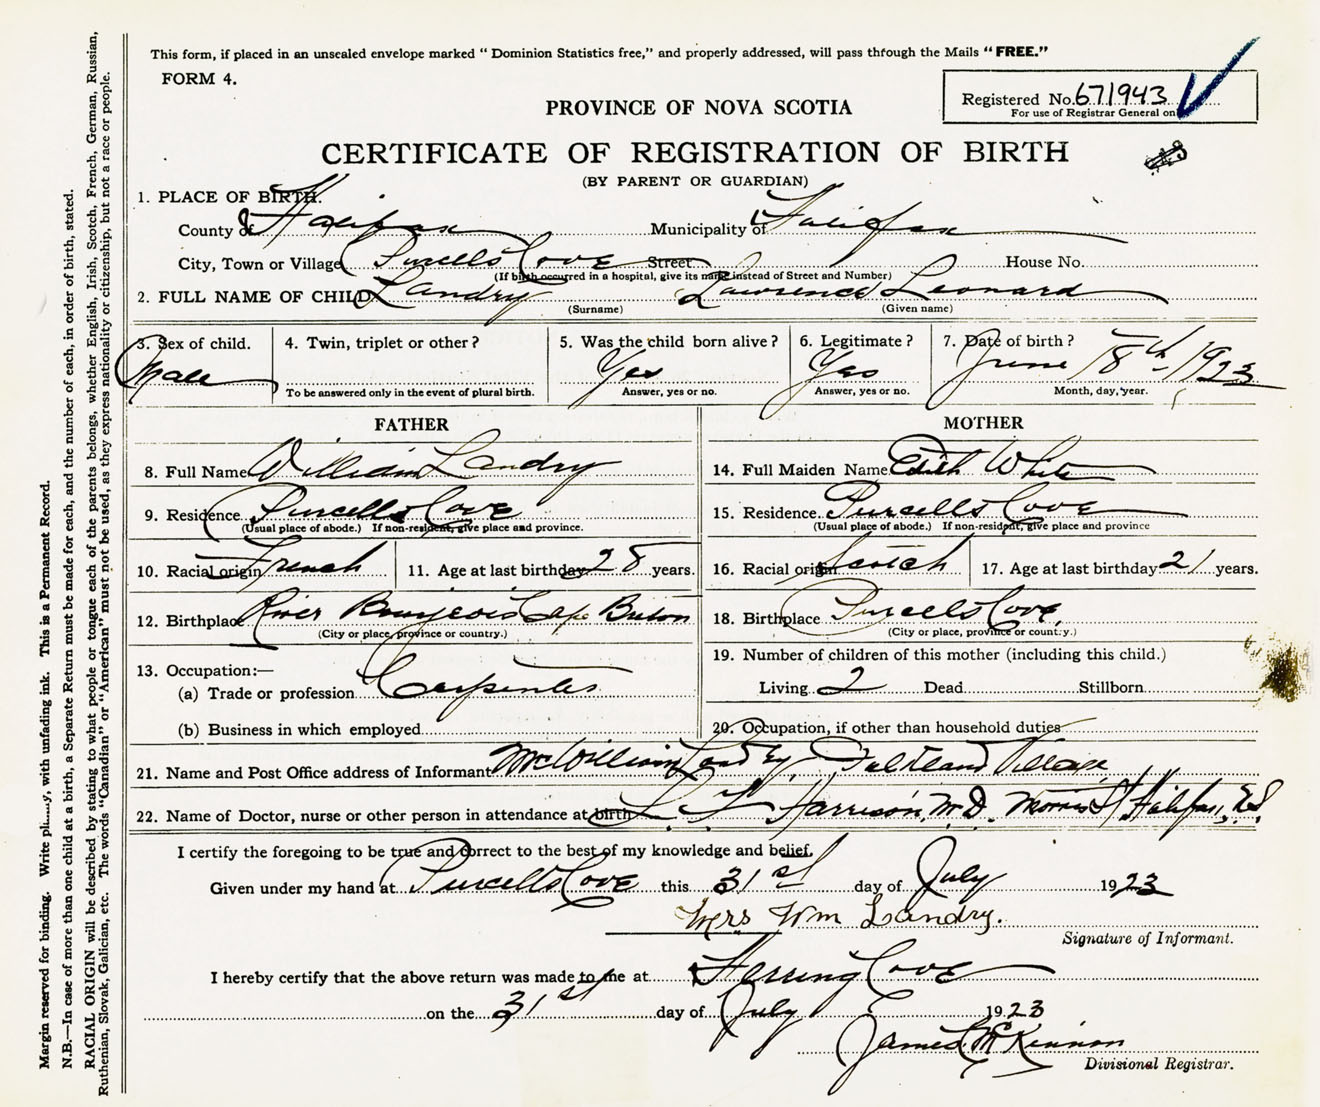 This form, if placed in an unsealed envelope marked “Dominion Statistics free,” and properly addressed, will pass through the Mails “FREE.”
FORM 4.
Registered No. 671943
For use of Registrar General on
PROVINCE OF NOVA SCOTIA
CERTIFICATE OF REGISTRATION OF BIRTH
(BY PARENT OR GUARDIAN)
1. PLACE OF BIRTH.
County of Halifax Municipality of Halifax
City, Town or Village Purcells Cove Street House No.
(If birth occurred in a hospital, give its name instead of Street and Number)
2. FULL NAME OF CHILD Landry Lawrence Leonard
(Surname) (Given name)
3. Sex of child. 4. Twin, triplet or other? 5. Was the child born alive? 6. Legitimate? 7. Date of birth?
Male Yes Yes June 18th 1923
To be answered only in the event of plural birth. Answer, yes or no. Answer, yes or no. Month, day, year.
FATHER MOTHER
8. Full Name William Landry 14. Full Maiden Name Edith White
9. Residence Purcells Cove 15. Residence Purcells Cove
(Usual place of abode.) If non-resident, give place and province. (Usual place of abode.) If non-resident, give place and province
10. Racial origin French 11. Age at last birthday 28 years. 16. Racial origin Scotch 17. Age at last birthday 21 years.
12. Birthplace River Bourgeois Cape Breton 18. Birthplace Purcells Cove,
(City or place, province or country.) (City or place, province or country.)
13. Occupation:— 19. Number of children of this mother (including this child.)
(a) Trade or profession Carpenter Living 2 Dead Stillborn
(b) Business in which employed 20. Occupation, if other than household duties
21. Name and Post Office address of Informant William Landry, Falkland Village
22. Name of Doctor, nurse or other person in attendance at birth Harrison, M.D. Morris St Halifax, N.S.
I certify the foregoing to be true and correct to the best of my knowledge and belief.
Given under my hand at Purcells Cove this 31st day of July 1923
Mrs Wm Landry.
Signature of Informant.
I hereby certify that the above return was made to me at Herring Cove
on the 31st day of July 1923
James McKinnon
Divisional Registrar.
Margin reserved for binding. Write with unfading ink. This is a Permanent Record.
N.B.—In case of more than one child at a birth, a Separate Return must be made for each, and the number of each, in order of birth, stated.
RACIAL ORIGIN will be described by stating to what people or tongue each of the parents belongs, whether English, Irish, Scotch, French, German, Russian,
Ruthenian, Slovak, Galician, etc. The words “Canadian” or “American” must not be used, as they express nationality or citizenship, but not a race or people.